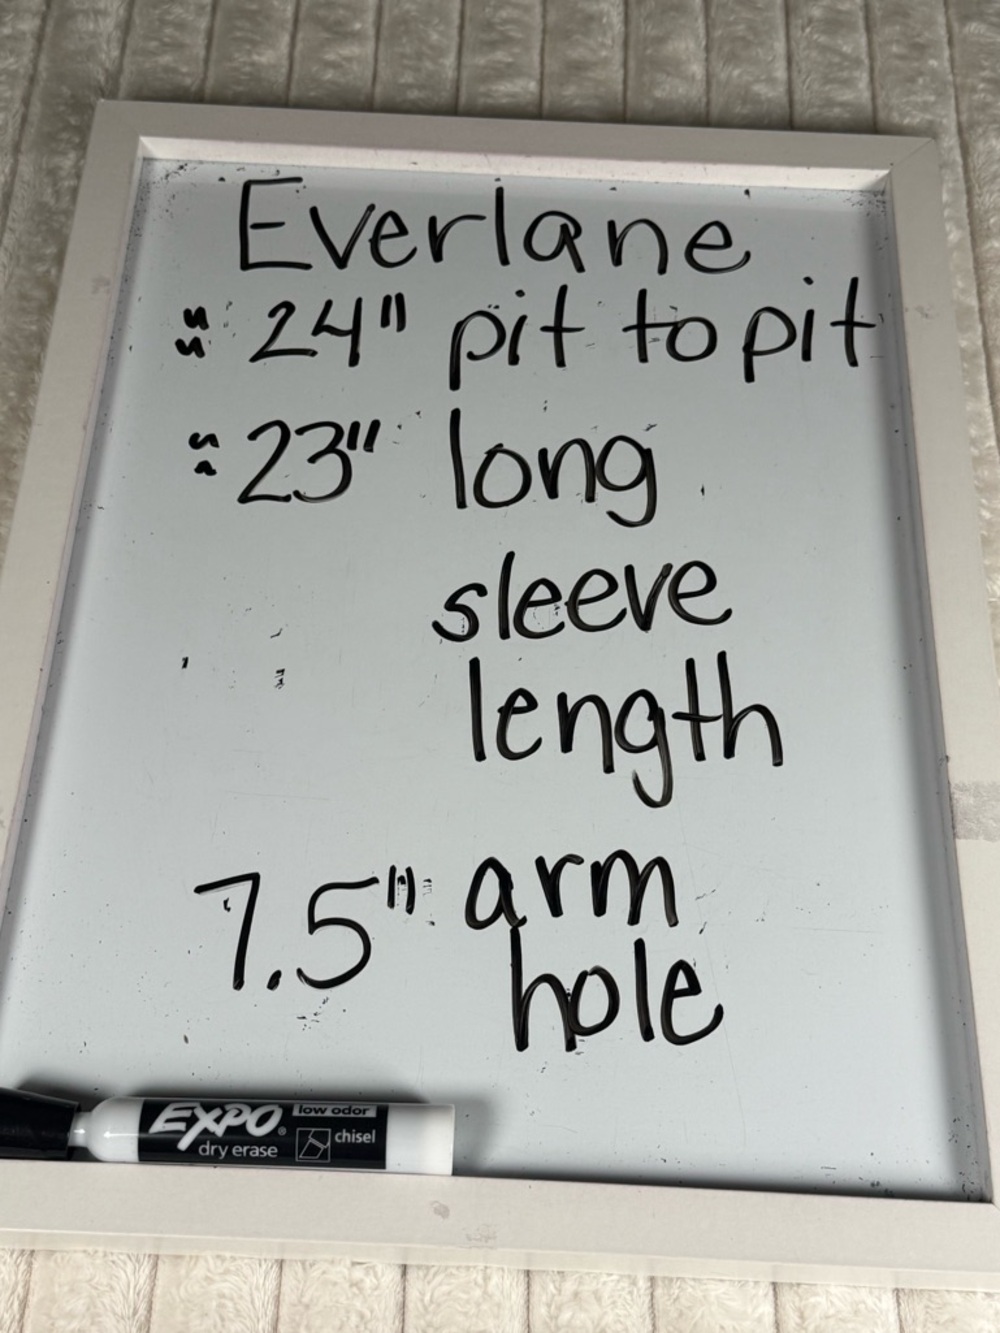 Everlane
≈ 24" pit to pit
≈ 23" long
sleeve
length
7.5" arm
hole
EXPO® low odor
dry erase chisel